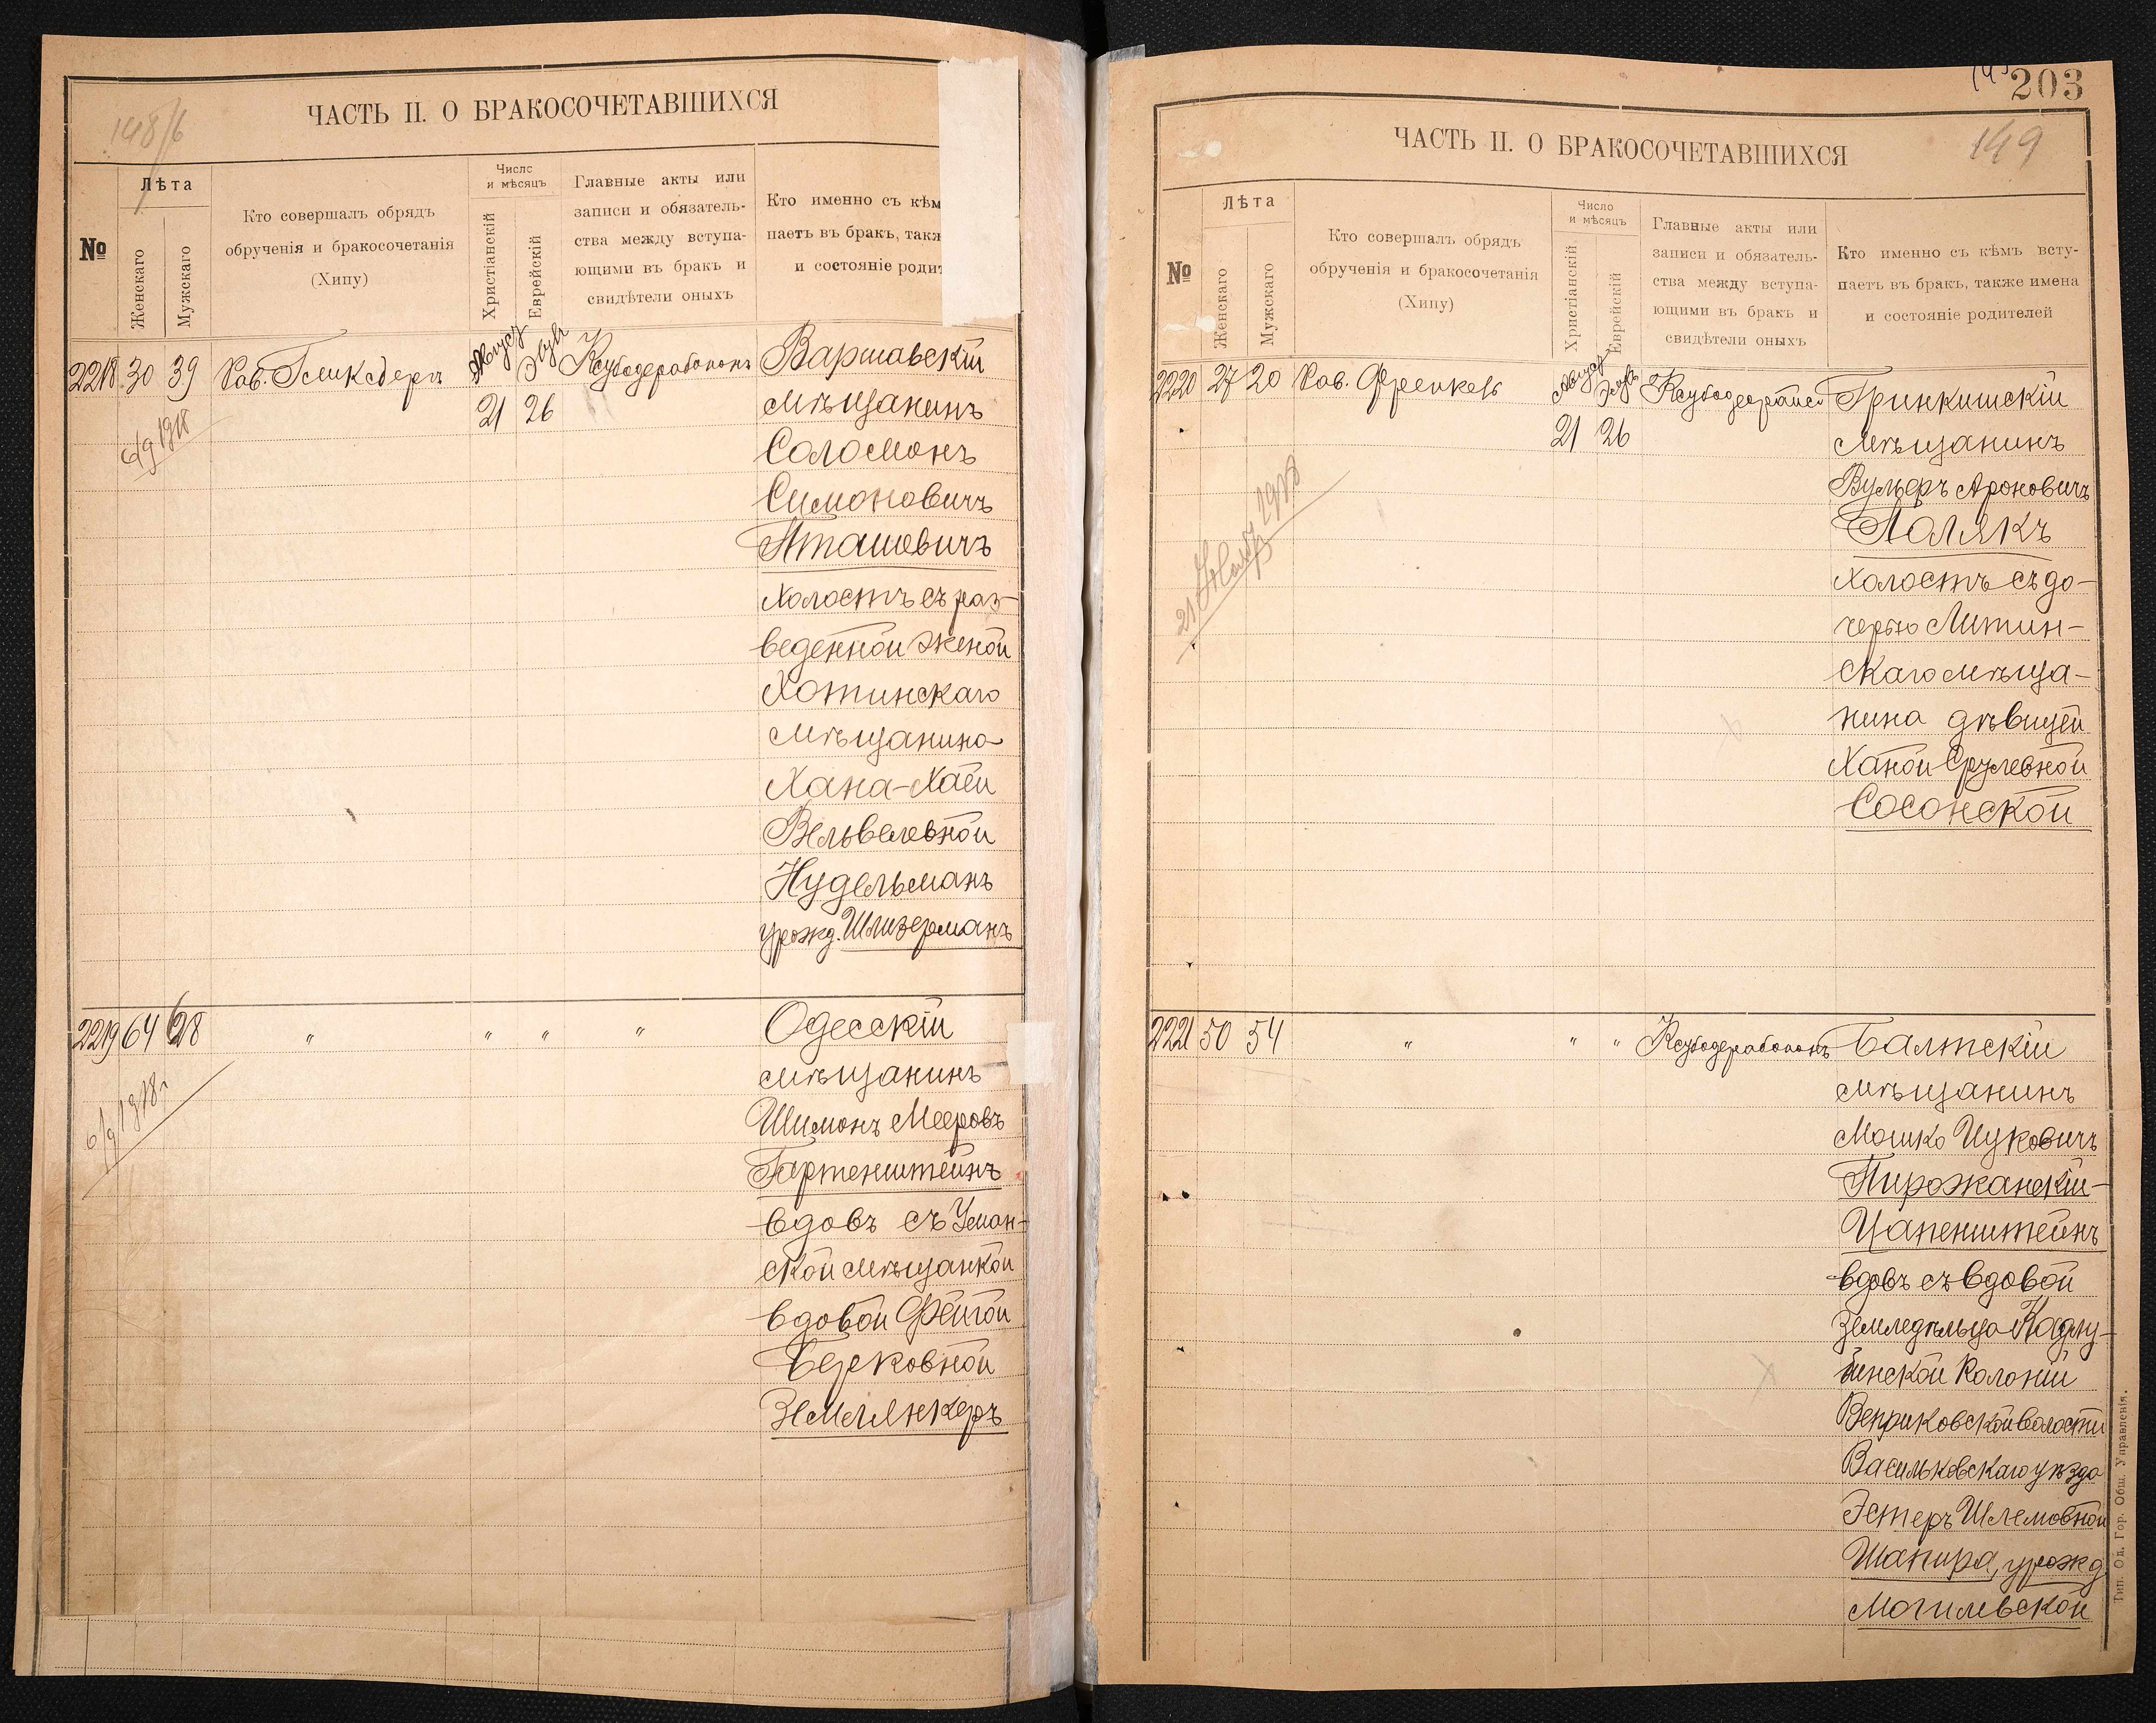 148/6
ЧАСТЬ II. О БРАКОСОЧЕТАВШИХСЯ
№
Лѣта
Женскаго
Мужскаго
Кто совершалъ обрядъ
обрученія и бракосочетанія
(Хипу)
Число
и мѣсяцъ
Христіанскій
Еврейскій
Главные акты или
записи и обязатель-
ства между вступа-
ющими въ бракъ и
свидѣтели оныхъ
Кто именно съ кѣм
паетъ въ бракъ, такж
и состояніе родит
2218 30 39 Рав. Август Элулъ Варшавскій
21 26 мѣщанинъ
6/9 1918
Соломонъ
Симоновичъ
Пташевичъ
холостъ съ раз-
веденной женой
Хотинскаго
мѣщанина
Хана-Хаей
Вельвелевной
Нудельманъ
урожд. Шлизерманъ
2219 64 68 " " " " Одесскій
мѣщанинъ
6/9 1918г
Шимонъ Мееровъ
Гартенштейнъ
вдовъ съ Уман-
ской мѣщанкой
вдовой Фейгой
Берковной
Землянкеръ
203
149
ЧАСТЬ II. О БРАКОСОЧЕТАВШИХСЯ
№
Лѣта
Женскаго
Мужскаго
Кто совершалъ обрядъ
обрученія и бракосочетанія
(Хипу)
Число
и мѣсяцъ
Христіанскій
Еврейскій
Главные акты или
записи и обязатель-
ства между вступа-
ющими въ бракъ и
свидѣтели оныхъ
Кто именно съ кѣмъ всту-
паетъ въ бракъ, также имена
и состояніе родителей
2220 27 20 Рав. Френкель Август Элулъ Гринкишскій
21 26 мѣщанинъ
Вульфъ Ароновичъ
Полякъ
холостъ съ до-
черью Литин-
скаго мѣща-
нина дѣвицей
Ханой Срулевной
Сосонской
2221 50 54 " " " Балтскій
мѣщанинъ
Мошко Ицковичъ
Пирожанскій-
Цапенштейнъ
вдовъ съ вдовой
земледѣльца Кадлу-
бинской колоніи
Веприковской волости
Васильковскаго уѣзда
Эстеръ Шлемовной
Шапира, урожд
Могилевской
Тип. Од. Гор. Общ. Управленія.